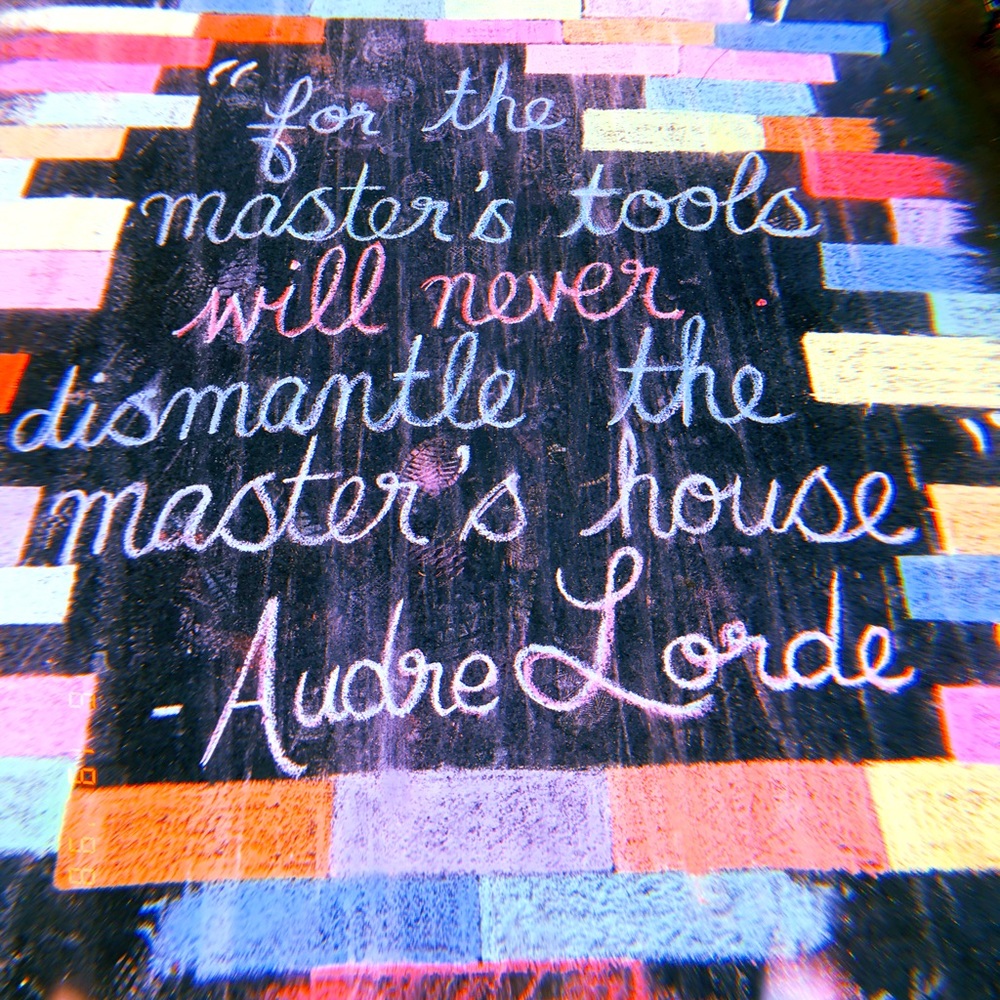 “for the
master's tools
will never
dismantle the
master's house”
- Audre Lorde